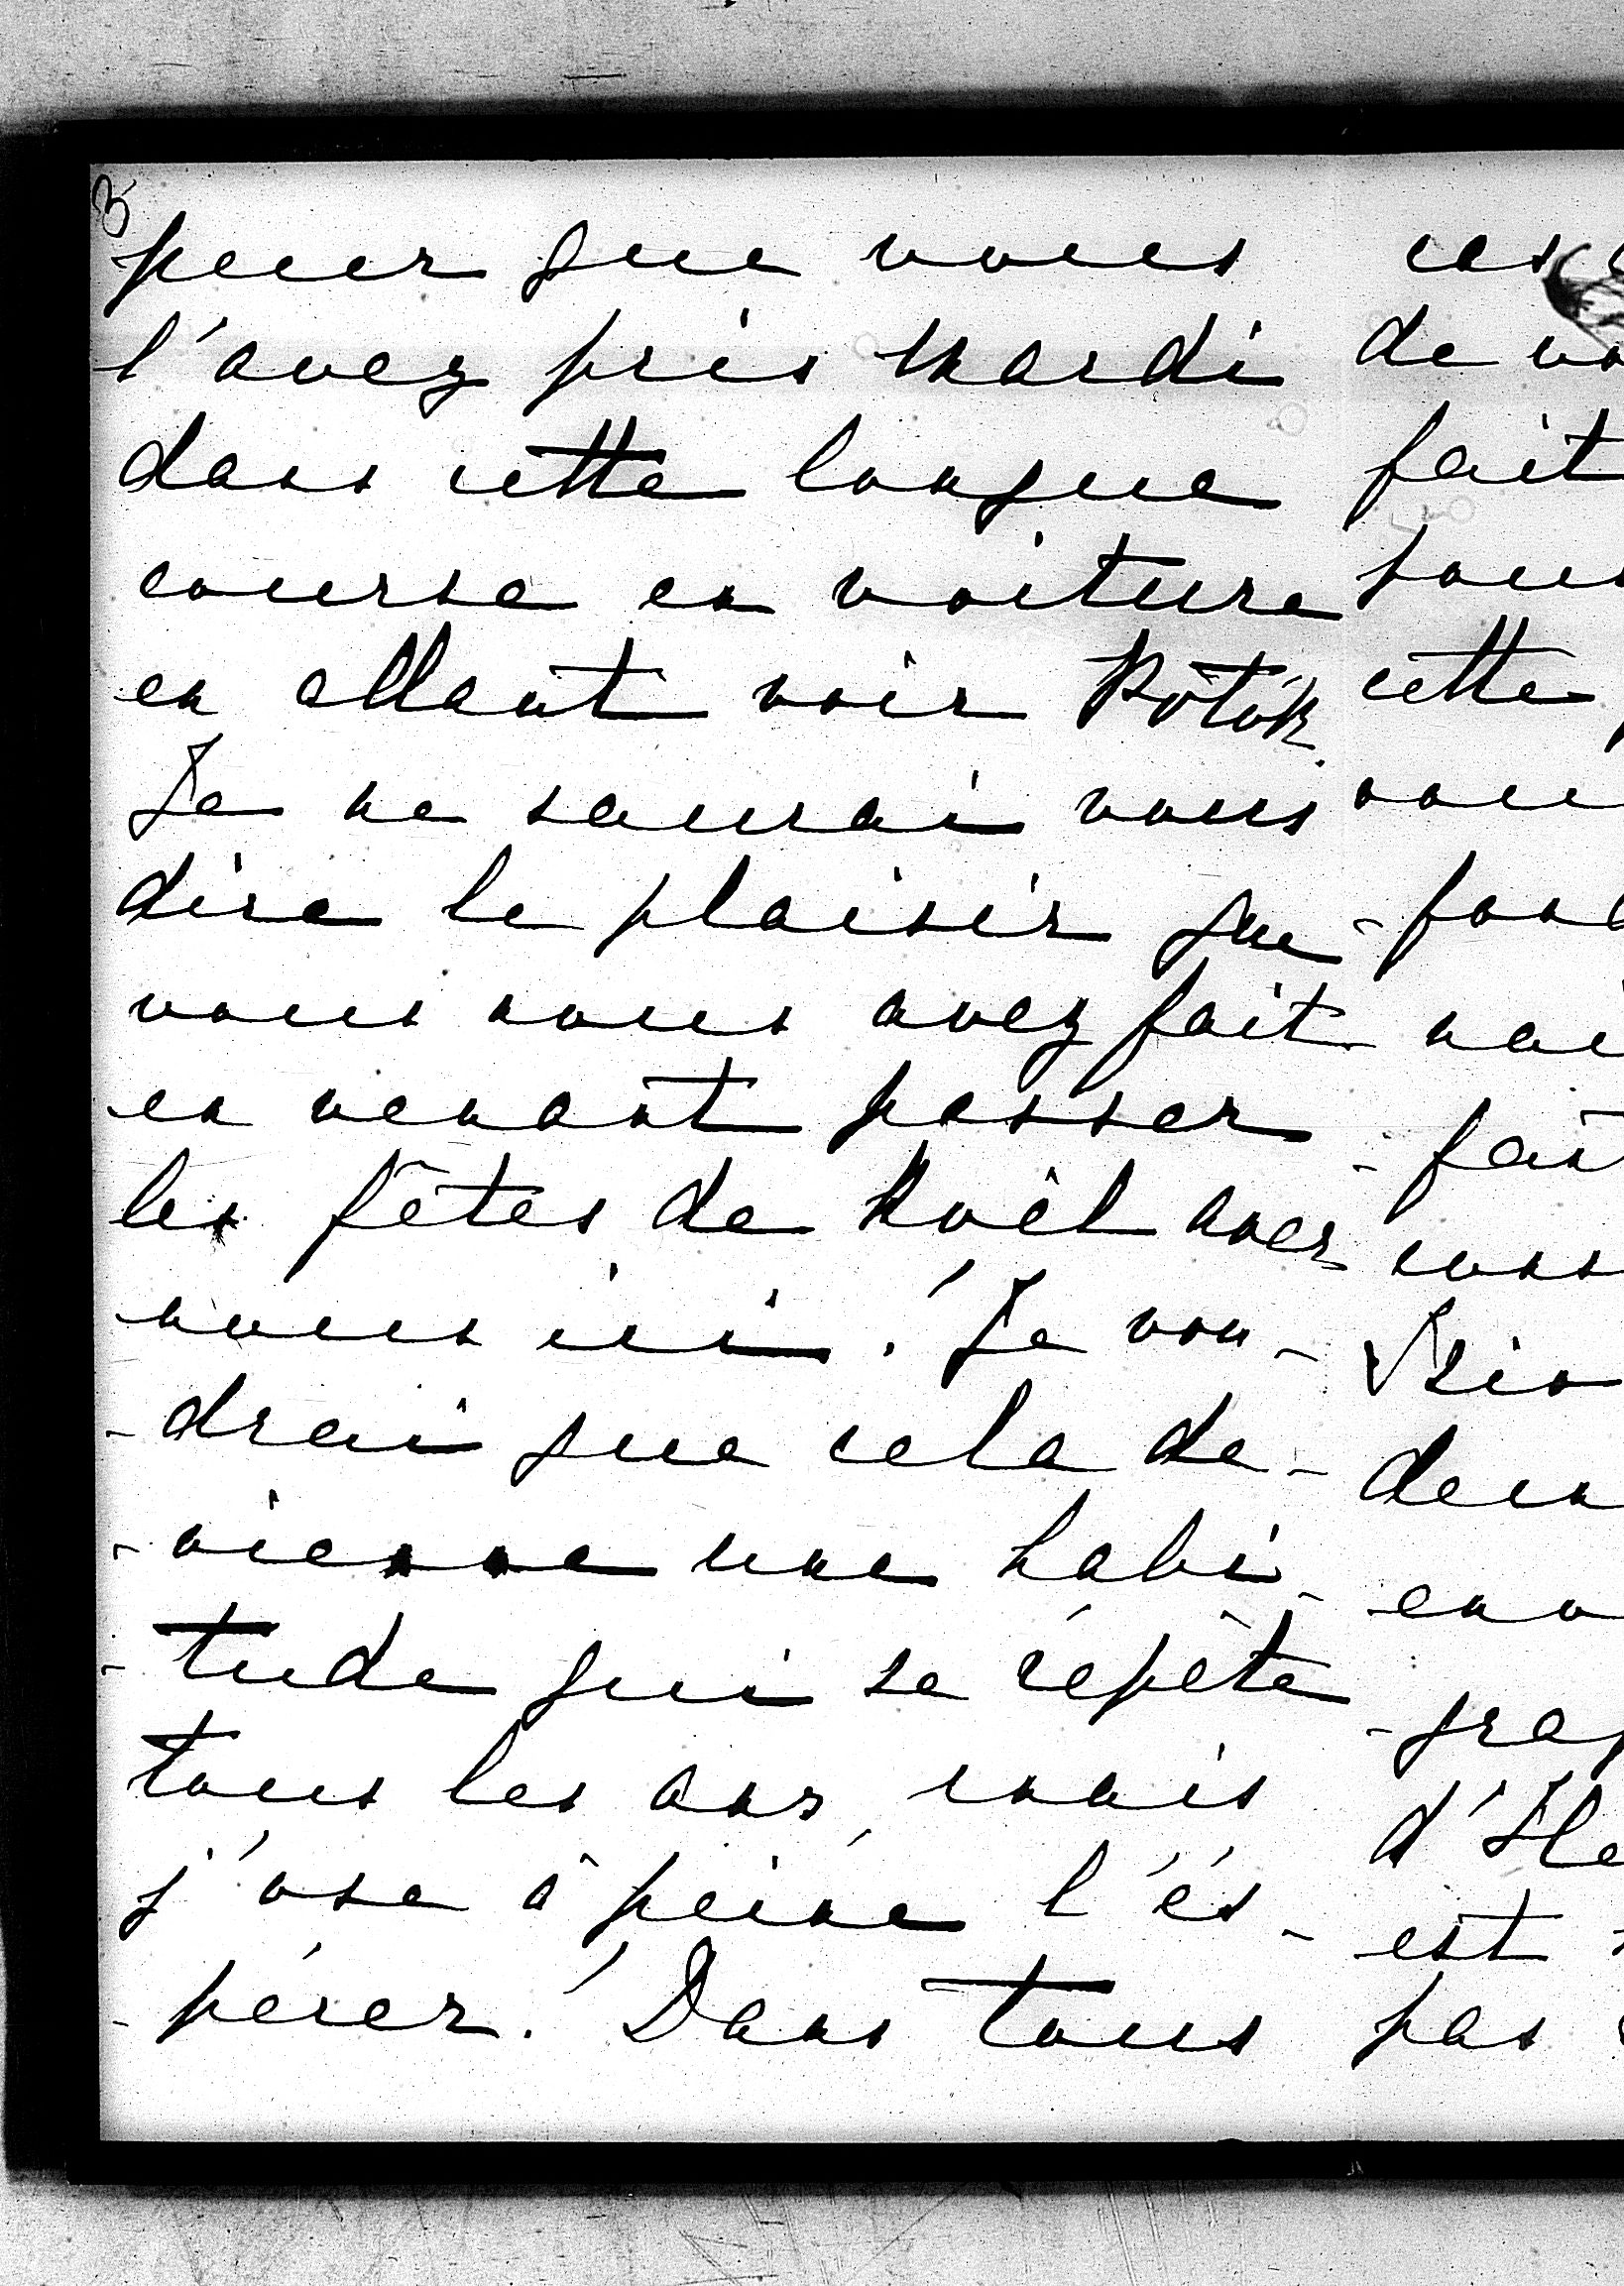 3
peur que vous
l'avez pris Mardi
dans cette longue
course en voiture
en allant voir Pótók.
Je ne saurai vous
dire le plaisir que
vous nous avez fait
en venant passer
les fêtes de Noël avec
nous ici. Je vou-
-drai que cela de-
-vienne une habi-
-tude qui se répète
tous les ans, mais
j'ose à peine l'és-
-pérer. Dans tous
ces
de vo
fait
pour
cette
nou
-fon
voi
-fais
cons
deux
env
-gra
d'Ile
est
pas